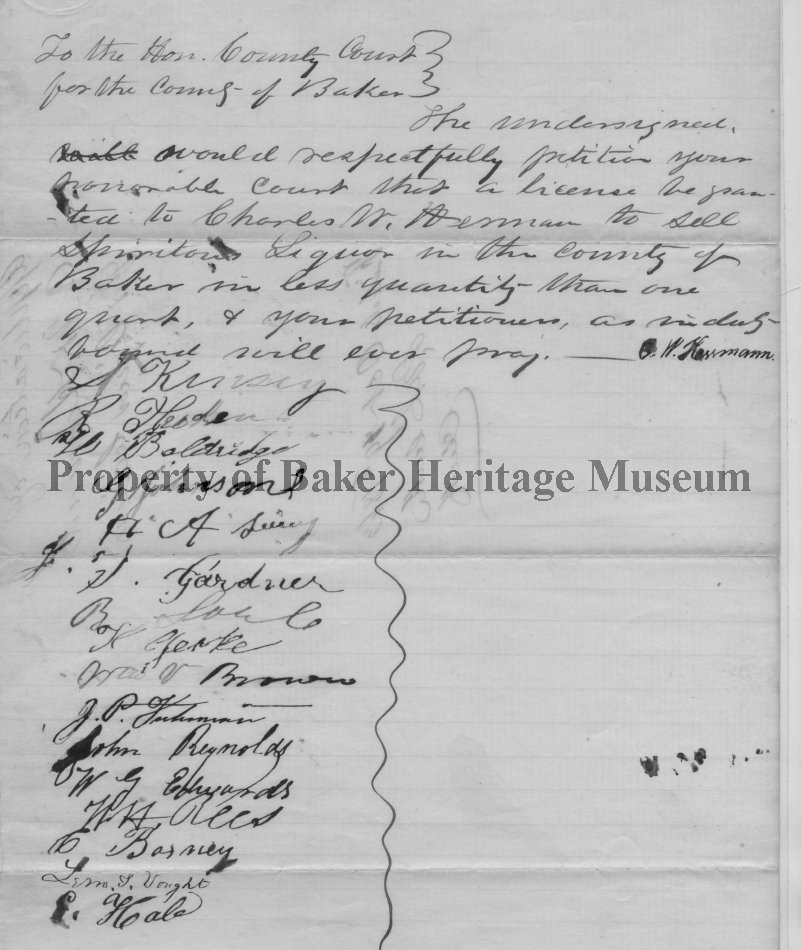 To the Hon. County Court
for the County of Baker
The undersigned,
would respectfully petition your
honorable court that a license be gran-
-ted to Charles W. Herman to sell
Spiritous Liquor in the county of
Baker in less quantity than one
quart, & your petitioners, as in duty
bound will ever pray. — C. W. Herrmann.
Kinsey
R
W Baldridge
Property of Baker Heritage Museum
Johnson
H A
J. T. Gardner
B
K
Wm V Brown
J. P.
John Reynolds
W G Edwards
W. H.
C Barney
Lem. T. Vought
E. Hale